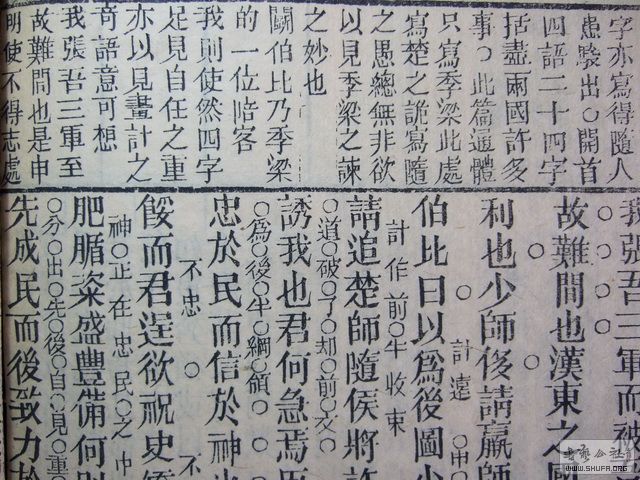 字亦寫得隨人
愚騃出○開首
四語二十四字
括盡兩國許多
事○此篇通體
只寫季梁此處
寫楚之詭寫隨
之愚總無非欲
以見季梁之諫
之妙也
鬭伯比乃季梁
的一位陪客
我則使然四字
足見自任之重
亦以見畫計之
奇語意可想
我張吾三軍至
故難間也是申
明使不得志處
我張吾三軍而被
故難間也漢東之國
利也少師侈請羸師
計遠 申
伯比曰以爲後圖少
計作前半收束
請追楚師隨侯將許
道破了却前文
誘我也君何急焉臣
爲後半綱領
忠於民而信於神也
不忠 不
餒而君逞欲祝史矯
神正在忠民之中
肥腯粢盛豐備何則
分出先後自見重
先成民而後致力於
WWW.SHUFA.ORG